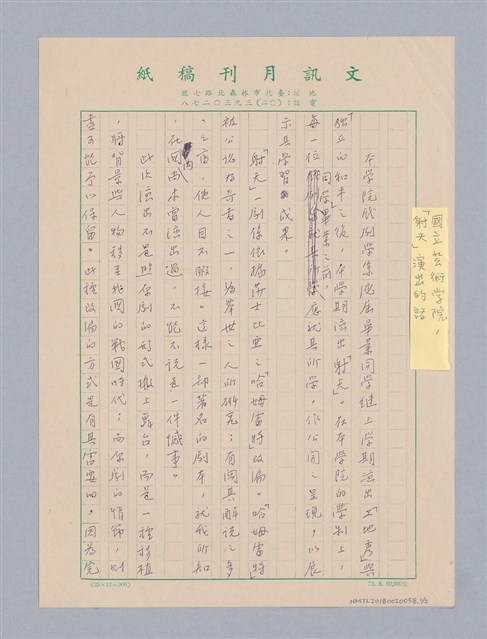 文訊月刊稿紙
地址:臺北市林森北路七號
電話:(〇二)三九三〇二七八
國立藝術學院,
「射天」演出的話
本學院戲劇學系應屆畢業同學繼上學期演出「地秀」與
「獨立的和平」之後,本學期演出「射天」。在本學院的學制上,
每一位同學畢業之前,應就其所學,作公開之呈現,以展
示其學習成果。
「射天」一劇係依據莎士比亞之「哈姆雷特」改編。「哈姆雷特」
被公認為
之一,為舉世之人所研究;有關其解說之多
之富,使人目不暇接。這樣一部著名的劇本,就我所知
,在國內尚未曾演出過,不能不說是一件憾事。
此次演出不是照原劇的形式搬上舞台,而是一種移植
,將背景與人物移至我國的戰國時代;而原劇的情節,則
盡可能予以保留。此種改編的方式是有其需要的,因為完
(25×12=300)
NMTL20180020058, 1/2